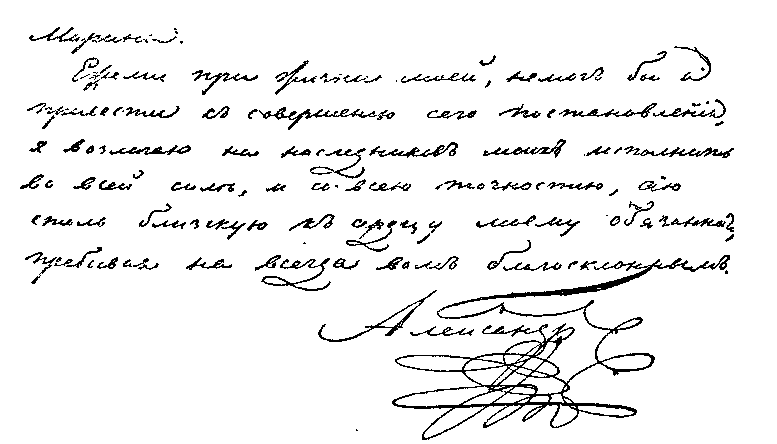 Марiи.
Ежели при жизни моей, немогъ бы я
привести къ совершенію сего постановленія,
я возлагаю на наслѣдниковъ моихъ исполнить
во всей силѣ, и со всею точностію, сію
столь близкую къ сердцу моему обязанность,
пребывая на всегда вамъ благосклоннымъ.
Александръ